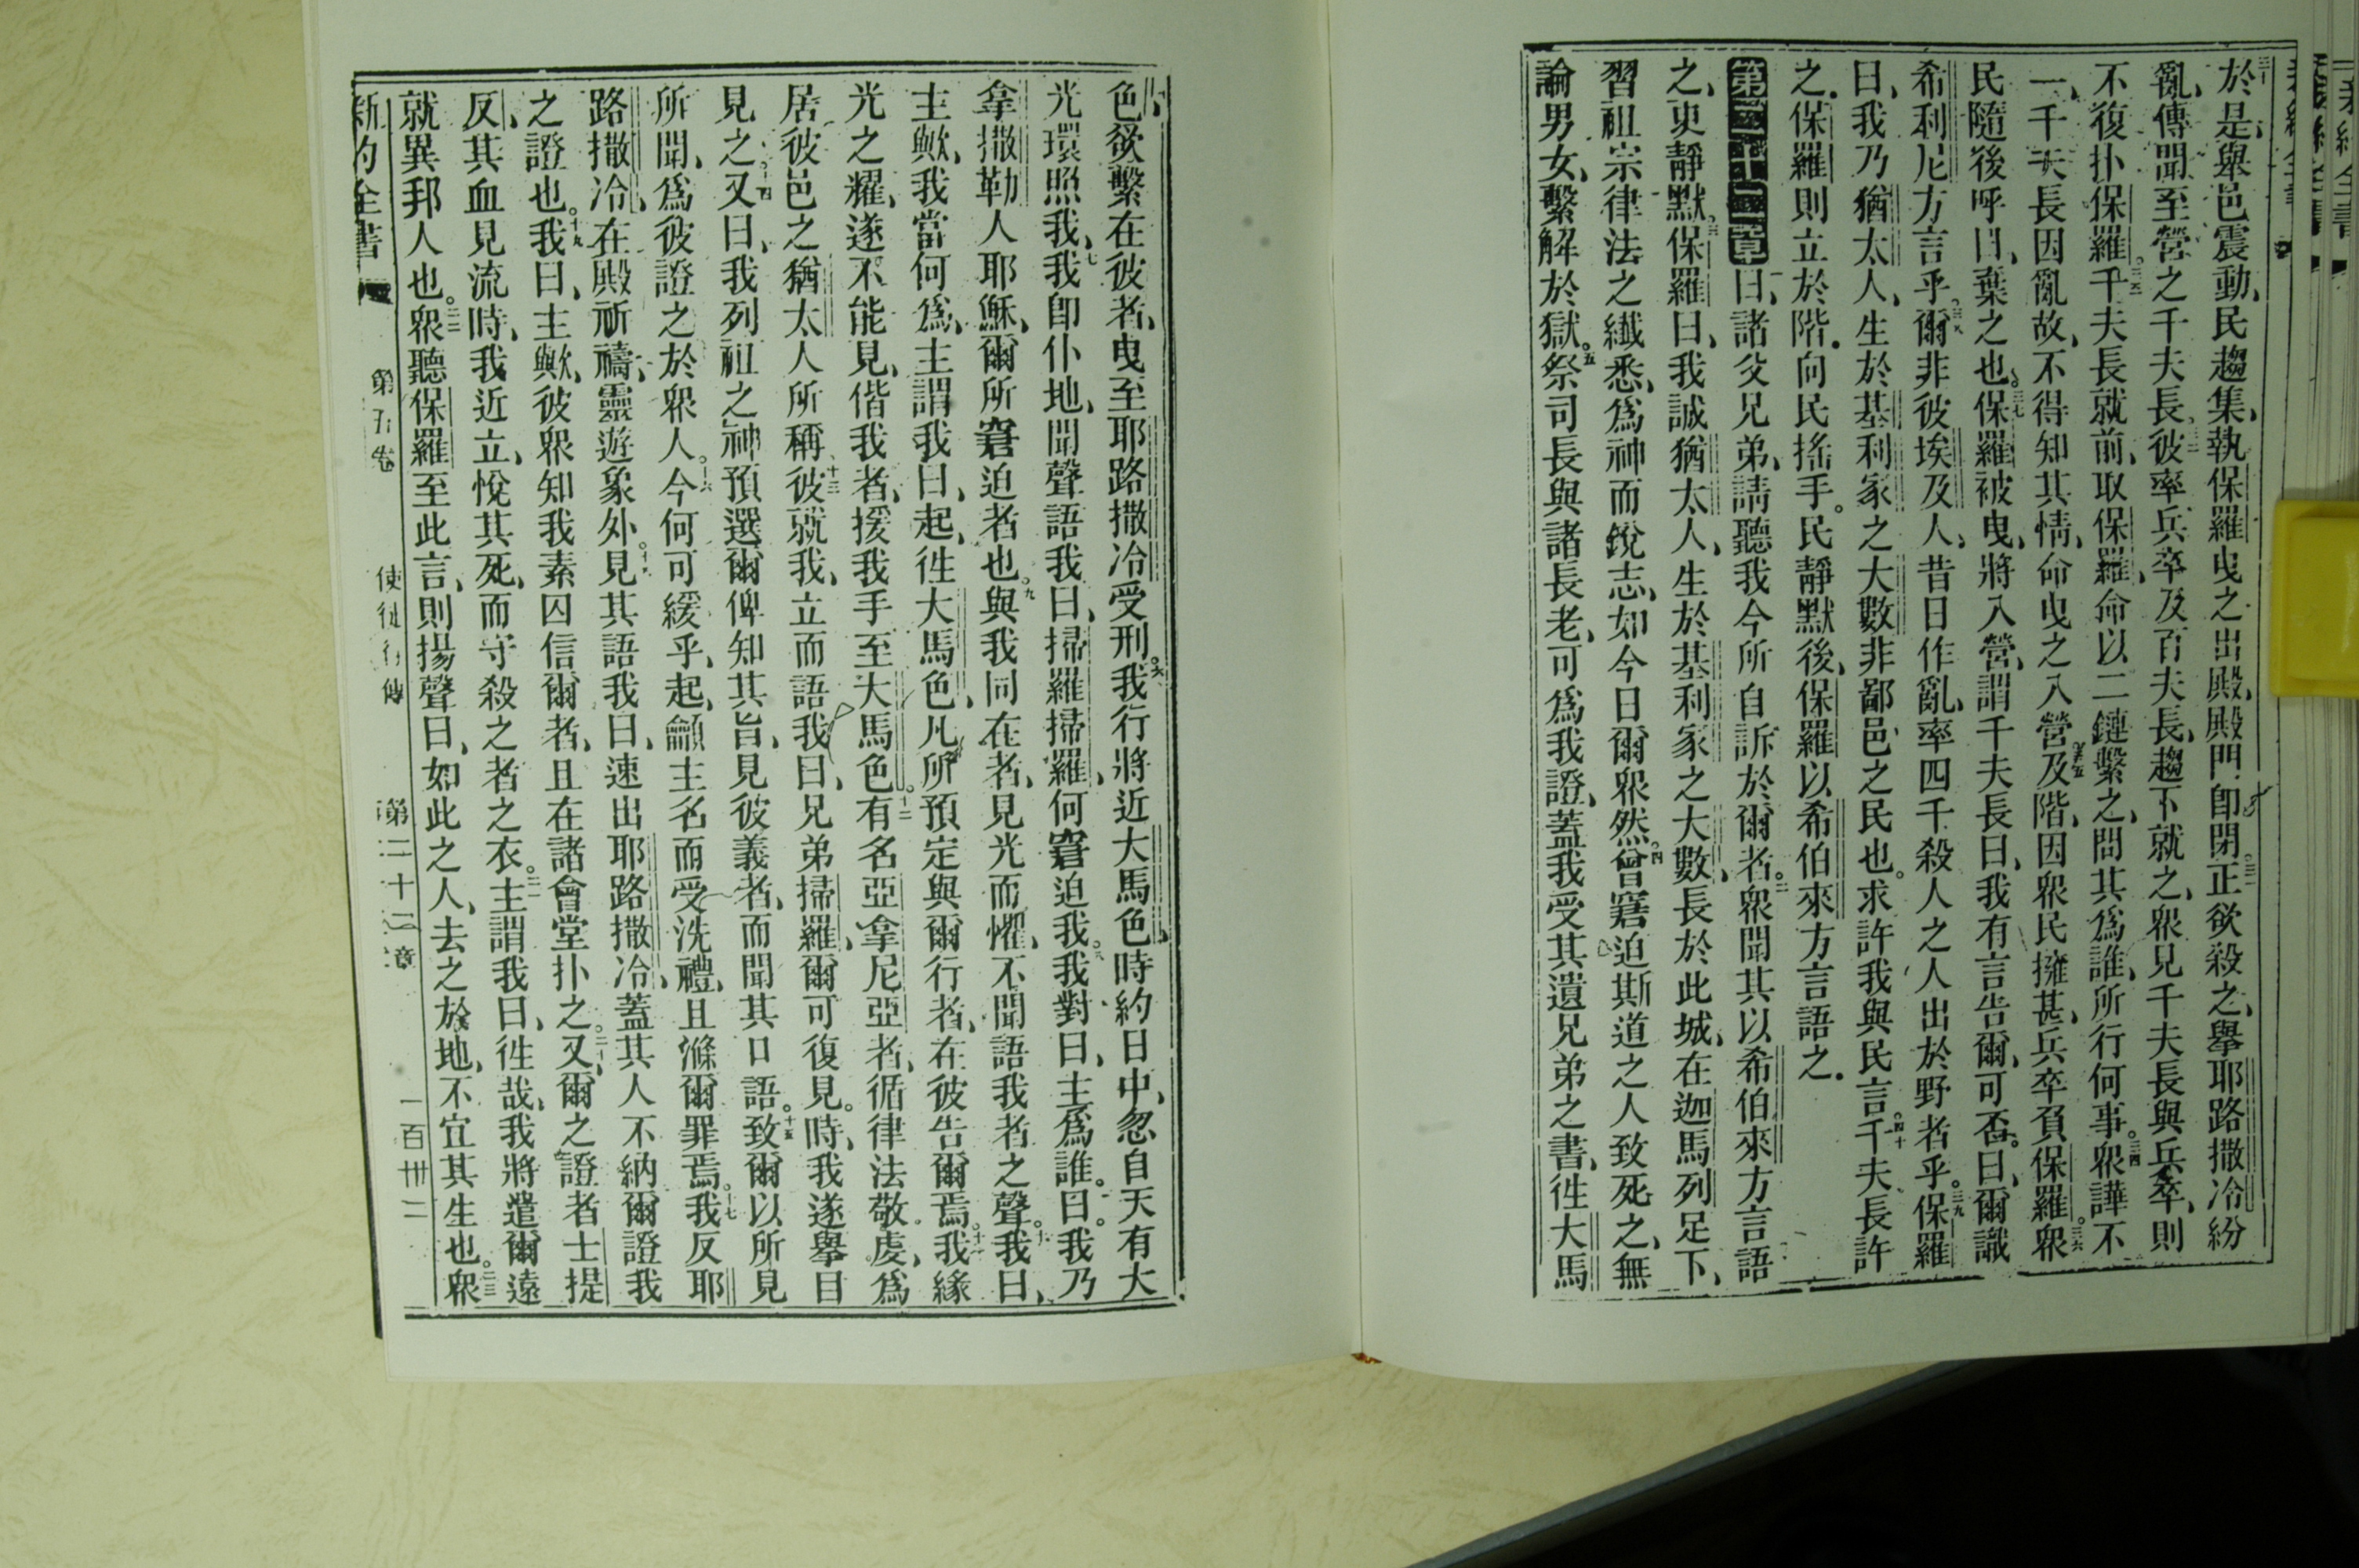 於是、舉邑震動、民趨集、執保羅曳之出殿、殿門卽閉。正欲殺之、舉耶路撒冷紛
亂、傳聞至營之千夫長。彼率兵卒及百夫長、趨下就之、眾見千夫長與兵卒、則
不復扑保羅。千夫長就前、取保羅、命以二鏈繫之、問其爲誰、所行何事。眾譁不
一、千夫長因亂故、不得知其情、命曳之入營、及階、因眾民擁甚、兵卒負保羅。眾
民隨後呼曰、棄之也。保羅被曳、將入營、謂千夫長曰、我有言告爾、可否。曰、爾識
希利尼方言乎。爾非彼埃及人、昔日作亂、率四千殺人之人出於野者乎。保羅
曰、我乃猶太人、生於基利家之大數、非鄙邑之民也。求許我與民言。千夫長許
之。保羅則立於階。向民搖手。民靜默後、保羅以希伯來方言語之。
第二十二章 曰、諸父兄弟、請聽我今所自訴於爾者。眾聞其以希伯來方言語
之、更靜默。保羅曰、我誠猶太人、生於基利家之大數、長於此城、在迦馬列足下、
習祖宗律法之纎悉、爲神而銳志、如今日爾眾然。曾窘迫斯道之人致死之、無
論男女、繫解於獄。祭司長與諸長老、可爲我證、蓋我受其遺兄弟之書、徃大馬
色、欲繫在彼者、曳至耶路撒冷受刑。我行將近大馬色、時約日中、忽自天有大
光環照我、我卽仆地、聞聲語我曰、掃羅掃羅、何窘迫我。我對曰、主爲誰。曰。我乃
拿撒勒人耶穌、爾所窘迫者也。與我同在者、見光而懼、不聞語我者之聲。我曰、
主歟、我當何爲、主謂我曰、起、徃大馬色、凡所預定與爾行者、在彼告爾焉。我緣
光之耀、遂不能見、偕我者、援我手至大馬色。有名亞拿尼亞者、循律法敬虔、爲
居彼邑之猶太人所稱、彼就我、立而語我曰、兄弟掃羅、爾可復見。時、我遂舉目
見之。又曰、我列祖之神預選爾、俾知其旨、見彼義者、而聞其口語。致爾以所見
所聞、爲彼證之於眾人。今何可緩乎、起、籲主名而受洗禮、且滌爾罪焉。我反耶
路撒冷、在殿祈禱、靈遊象外。見其語我曰、速出耶路撒冷、蓋其人不納爾證我
之證也。我曰、主歟、彼眾知我素囚信爾者、且在諸會堂扑之。又爾之證者士提
反、其血見流時、我近立、悅其死、而守殺之者之衣。主謂我曰、徃哉、我將遣爾遠
就異邦人也。眾聽保羅至此言、則揚聲曰、如此之人、去之於地、不宜其生也。眾
新約全書 第五卷 使徒行傳 第二十二章 一百卅二